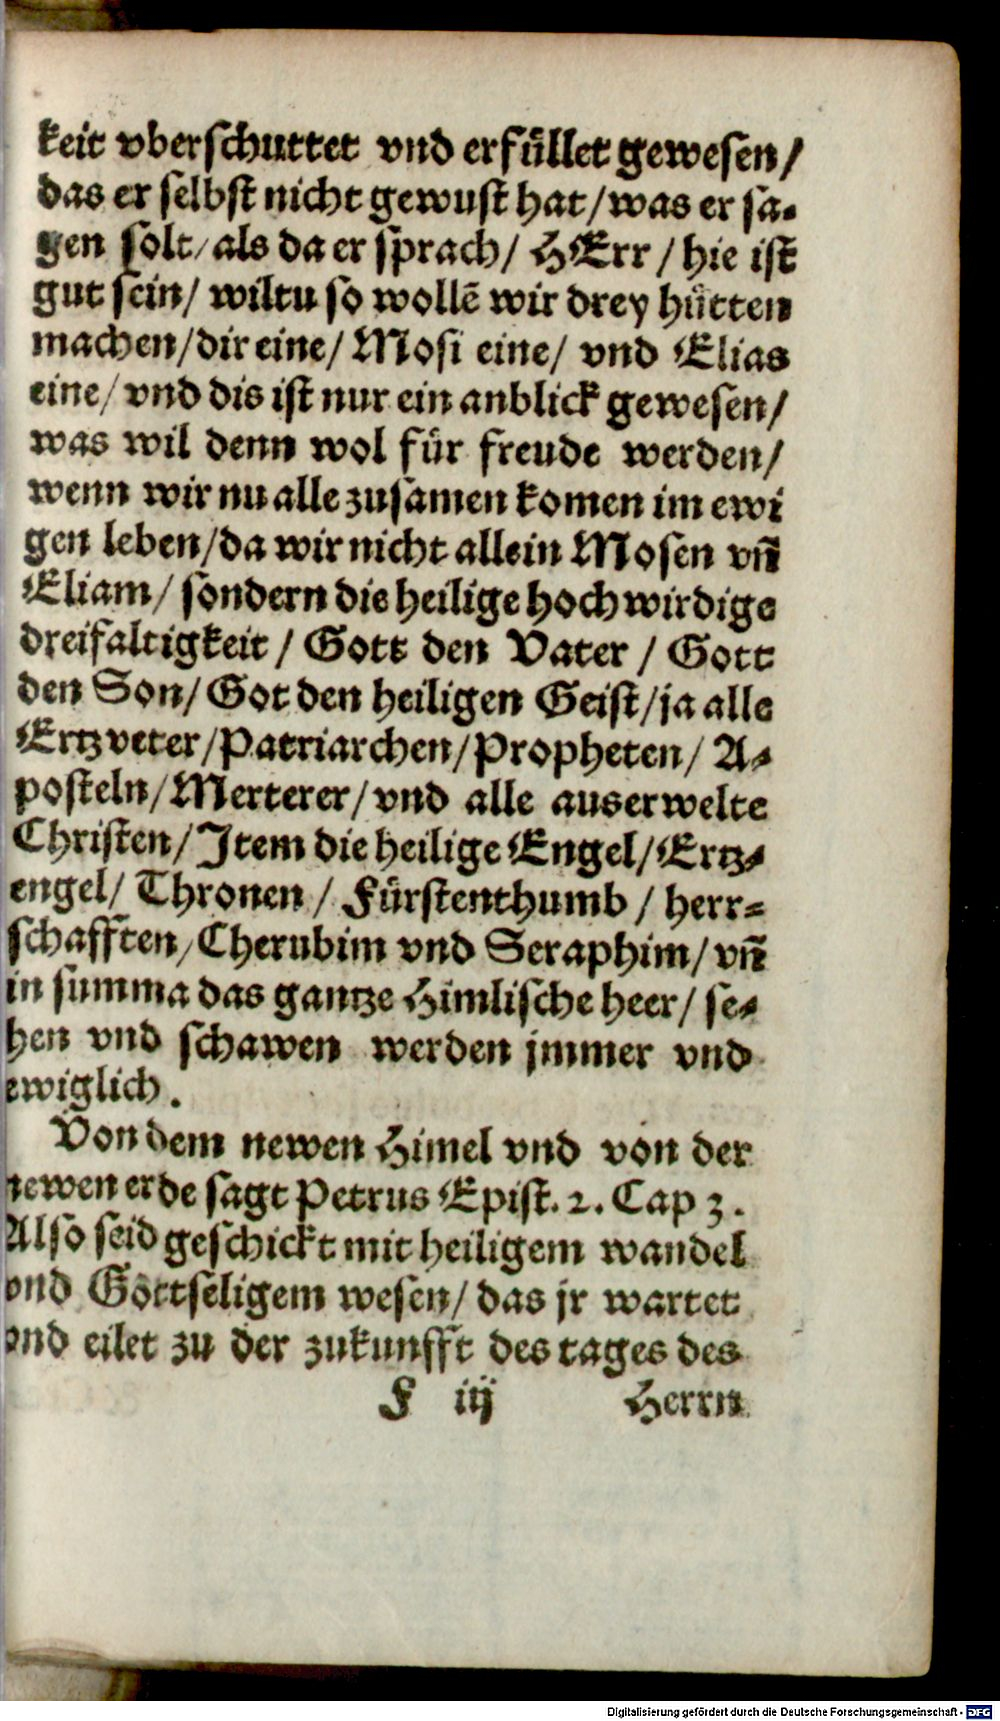 keit vberschuttet vnd erfüllet gewesen/
das er selbst nicht gewust hat/was er sa-
gen solt/als da er sprach/ HErr / hie ist
gut sein/ wiltu so wollē wir drey hütten
machen/dir eine/ Mosi eine/ vnd Elias
eine/ vnd dis ist nur ein anblick gewesen/
was wil denn wol für freude werden/
wenn wir nu alle zusamen komen im ewi
gen leben/da wir nicht allein Mosen vñ
Eliam/ sondern die heilige hochwirdige
dreifaltigkeit / Gott den Vater / Gott
den Son/ Got den heiligen Geist/ja alle
Ertzveter/Patriarchen/Propheten/ A-
posteln/Merterer/vnd alle auserwelte
Christen/Item die heilige Engel/Ertz-
engel/ Thronen / Fürstenthumb / herr-
schafften/Cherubim vnd Seraphim/ vñ
in summa das gantze Himlische heer/ se-
hen vnd schawen werden jmmer vnd
ewiglich.
Von dem newen Himel vnd von der
newen erde sagt Petrus Epist. 2. Cap 3.
Also seid geschickt mit heiligem wandel
vnd Gottseligem wesen/ das jr wartet
vnd eilet zu der zukunfft des tages des
F iij Herrn
Digitalisierung gefördert durch die Deutsche Forschungsgemeinschaft - DFG